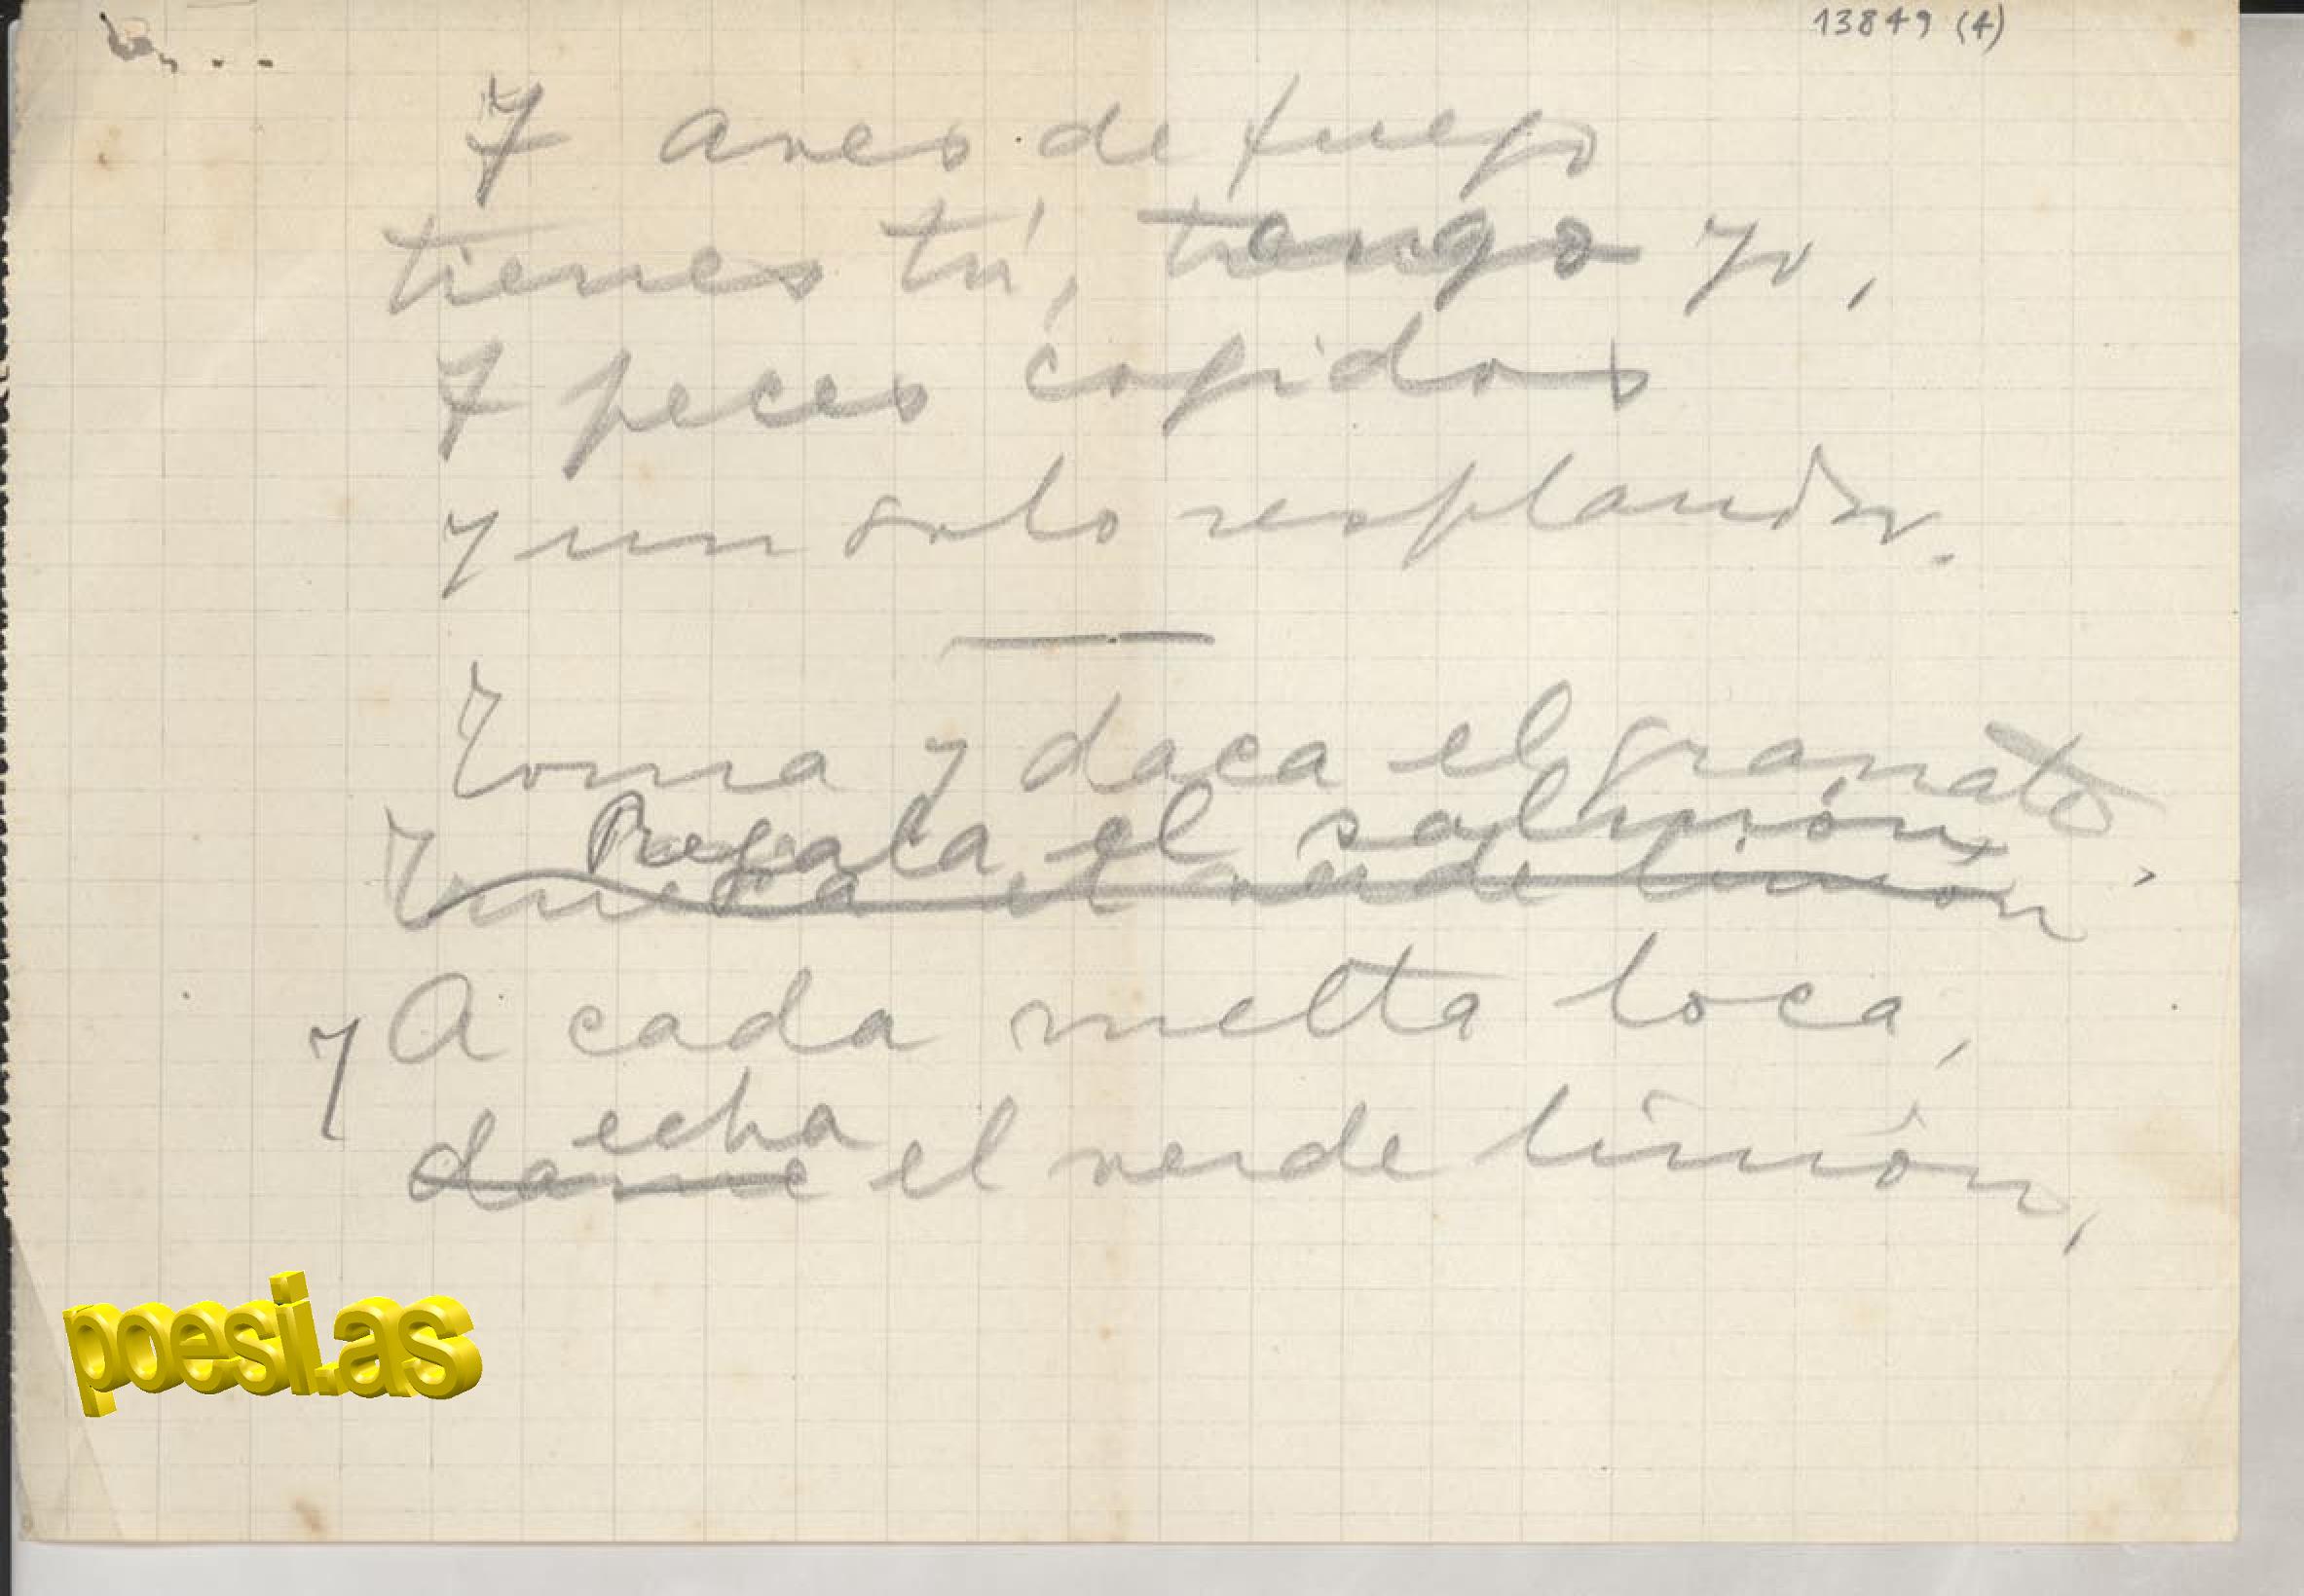 13849 (4)
7 aves de fuego
tienes tú, tengo yo,
7 peces cogidos
y un solo resplandor.
Toma y daca el granate
Regala el salmón,
el verde limón
y A cada vuelta loca,
echa
dame el verde limón,
poesi.as